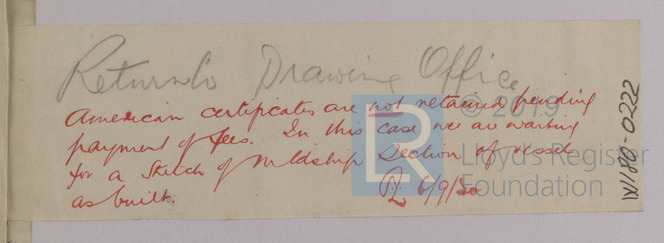 Return to Drawing Office
American certificates are not retained pending
payment of fees. In this case we are waiting
for a Sketch of Midship Section of vessel
as built. 6/9/50
© 2019
Lloyd's Register
Foundation
LR